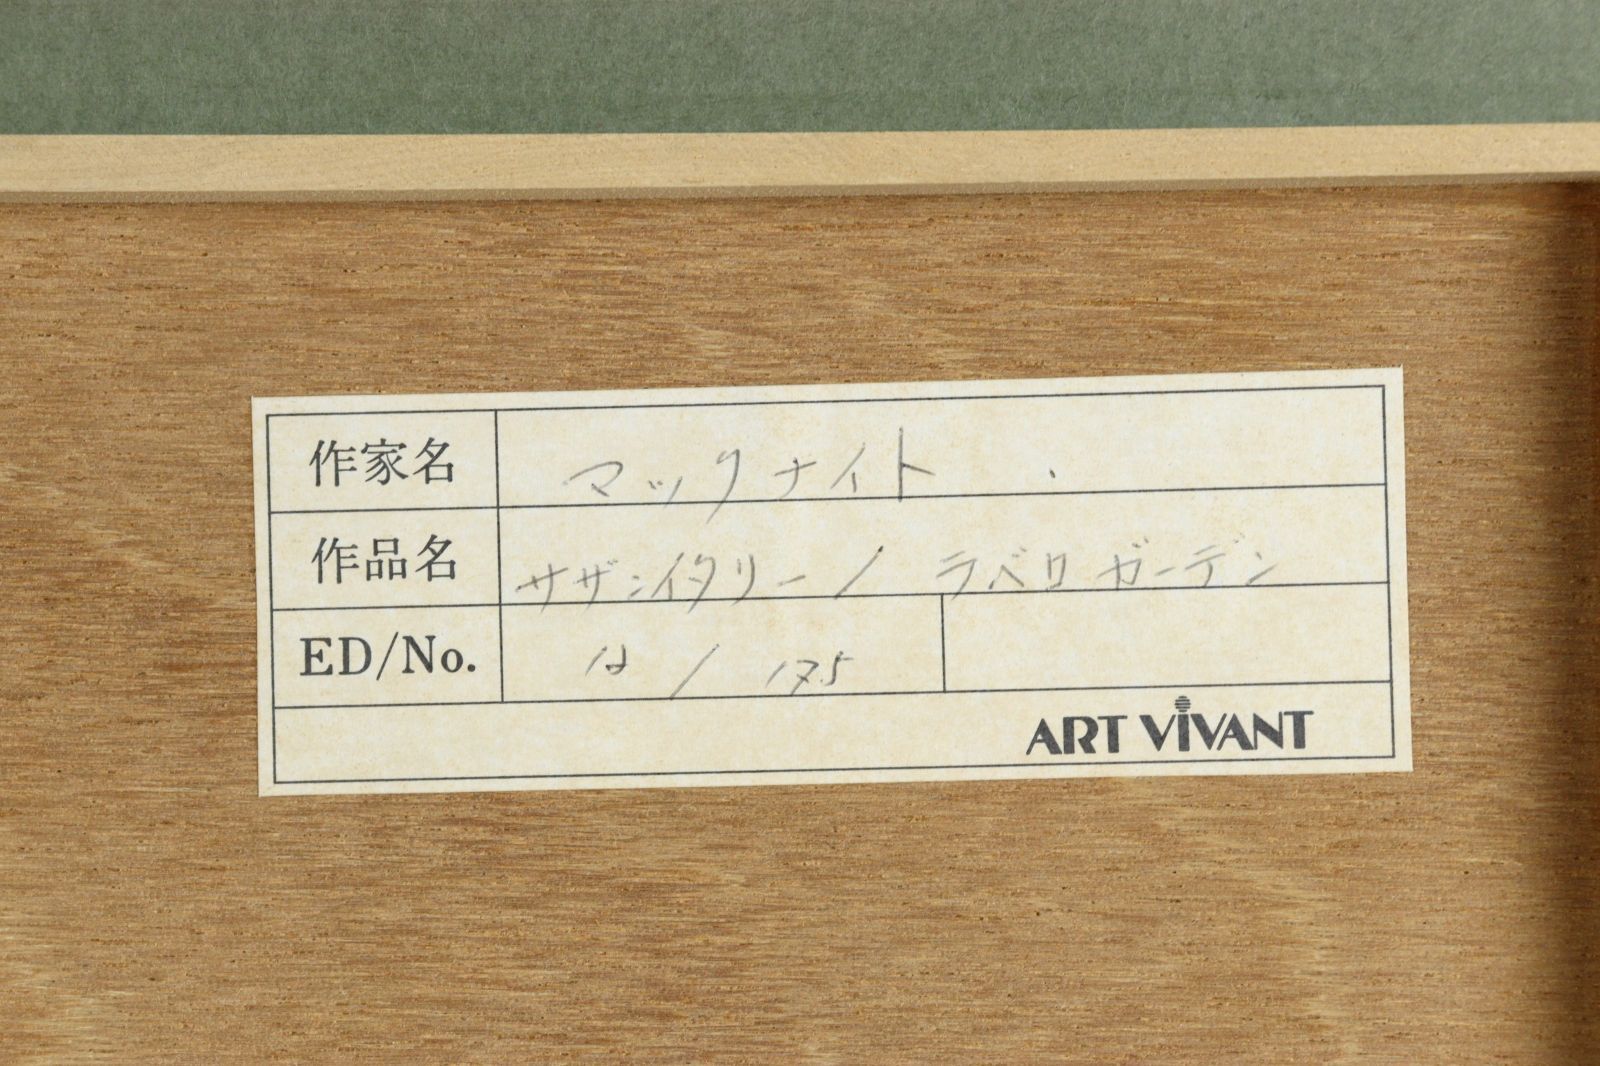 作家名 マックナイト
作品名 サザンイタリー / ラベロガーデン
ED/No. / 175
ART VIVANT